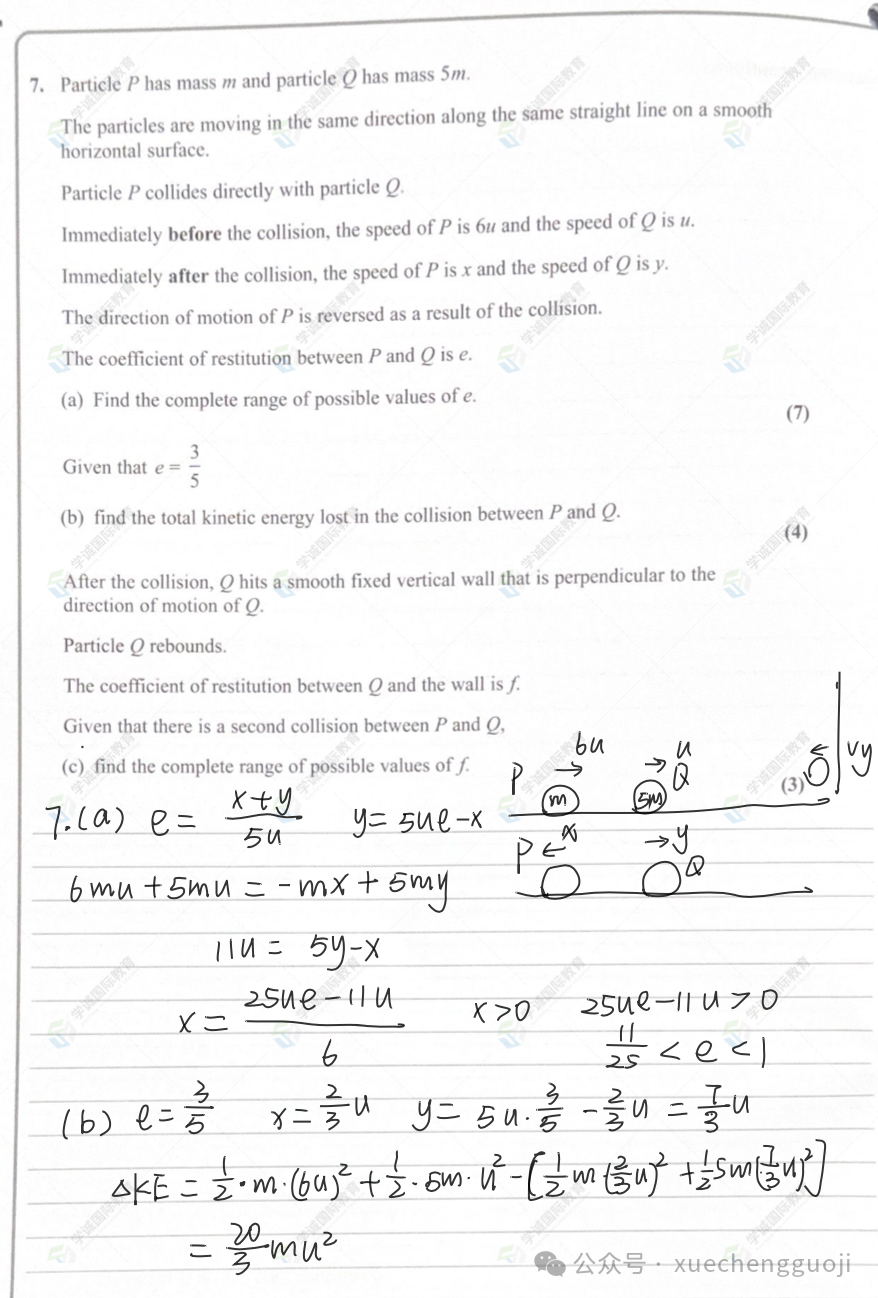 7. Particle P has mass m and particle Q has mass 5m.
The particles are moving in the same direction along the same straight line on a smooth
horizontal surface.
Particle P collides directly with particle Q.
Immediately before the collision, the speed of P is 6u and the speed of Q is u.
Immediately after the collision, the speed of P is x and the speed of Q is y.
The direction of motion of P is reversed as a result of the collision.
The coefficient of restitution between P and Q is e.
(a) Find the complete range of possible values of e.
(7)
Given that e = 3/5
(b) find the total kinetic energy lost in the collision between P and Q.
(4)
After the collision, Q hits a smooth fixed vertical wall that is perpendicular to the
direction of motion of Q.
Particle Q rebounds.
The coefficient of restitution between Q and the wall is f.
Given that there is a second collision between P and Q,
(c) find the complete range of possible values of f.
(3)
P → 6u m → u Q 5m ← vy
P ← x → y Q
7.(a) e = (x+y)/5u y = 5ue-x
6mu + 5mu = -mx + 5my
11u = 5y-x
x = (25ue-11u)/6 x>0 25ue-11u>0
11/25 < e < 1
(b) e = 3/5 x = 2/3 u y = 5u·3/5 - 2/3 u = 7/3 u
△KE = 1/2·m·(6u)² + 1/2·5m·u² - [1/2 m (2/3 u)² + 1/2 5m(7/3 u)²]
= 20/3 mu²
公众号 · xuechengguoji
学诚国际教育